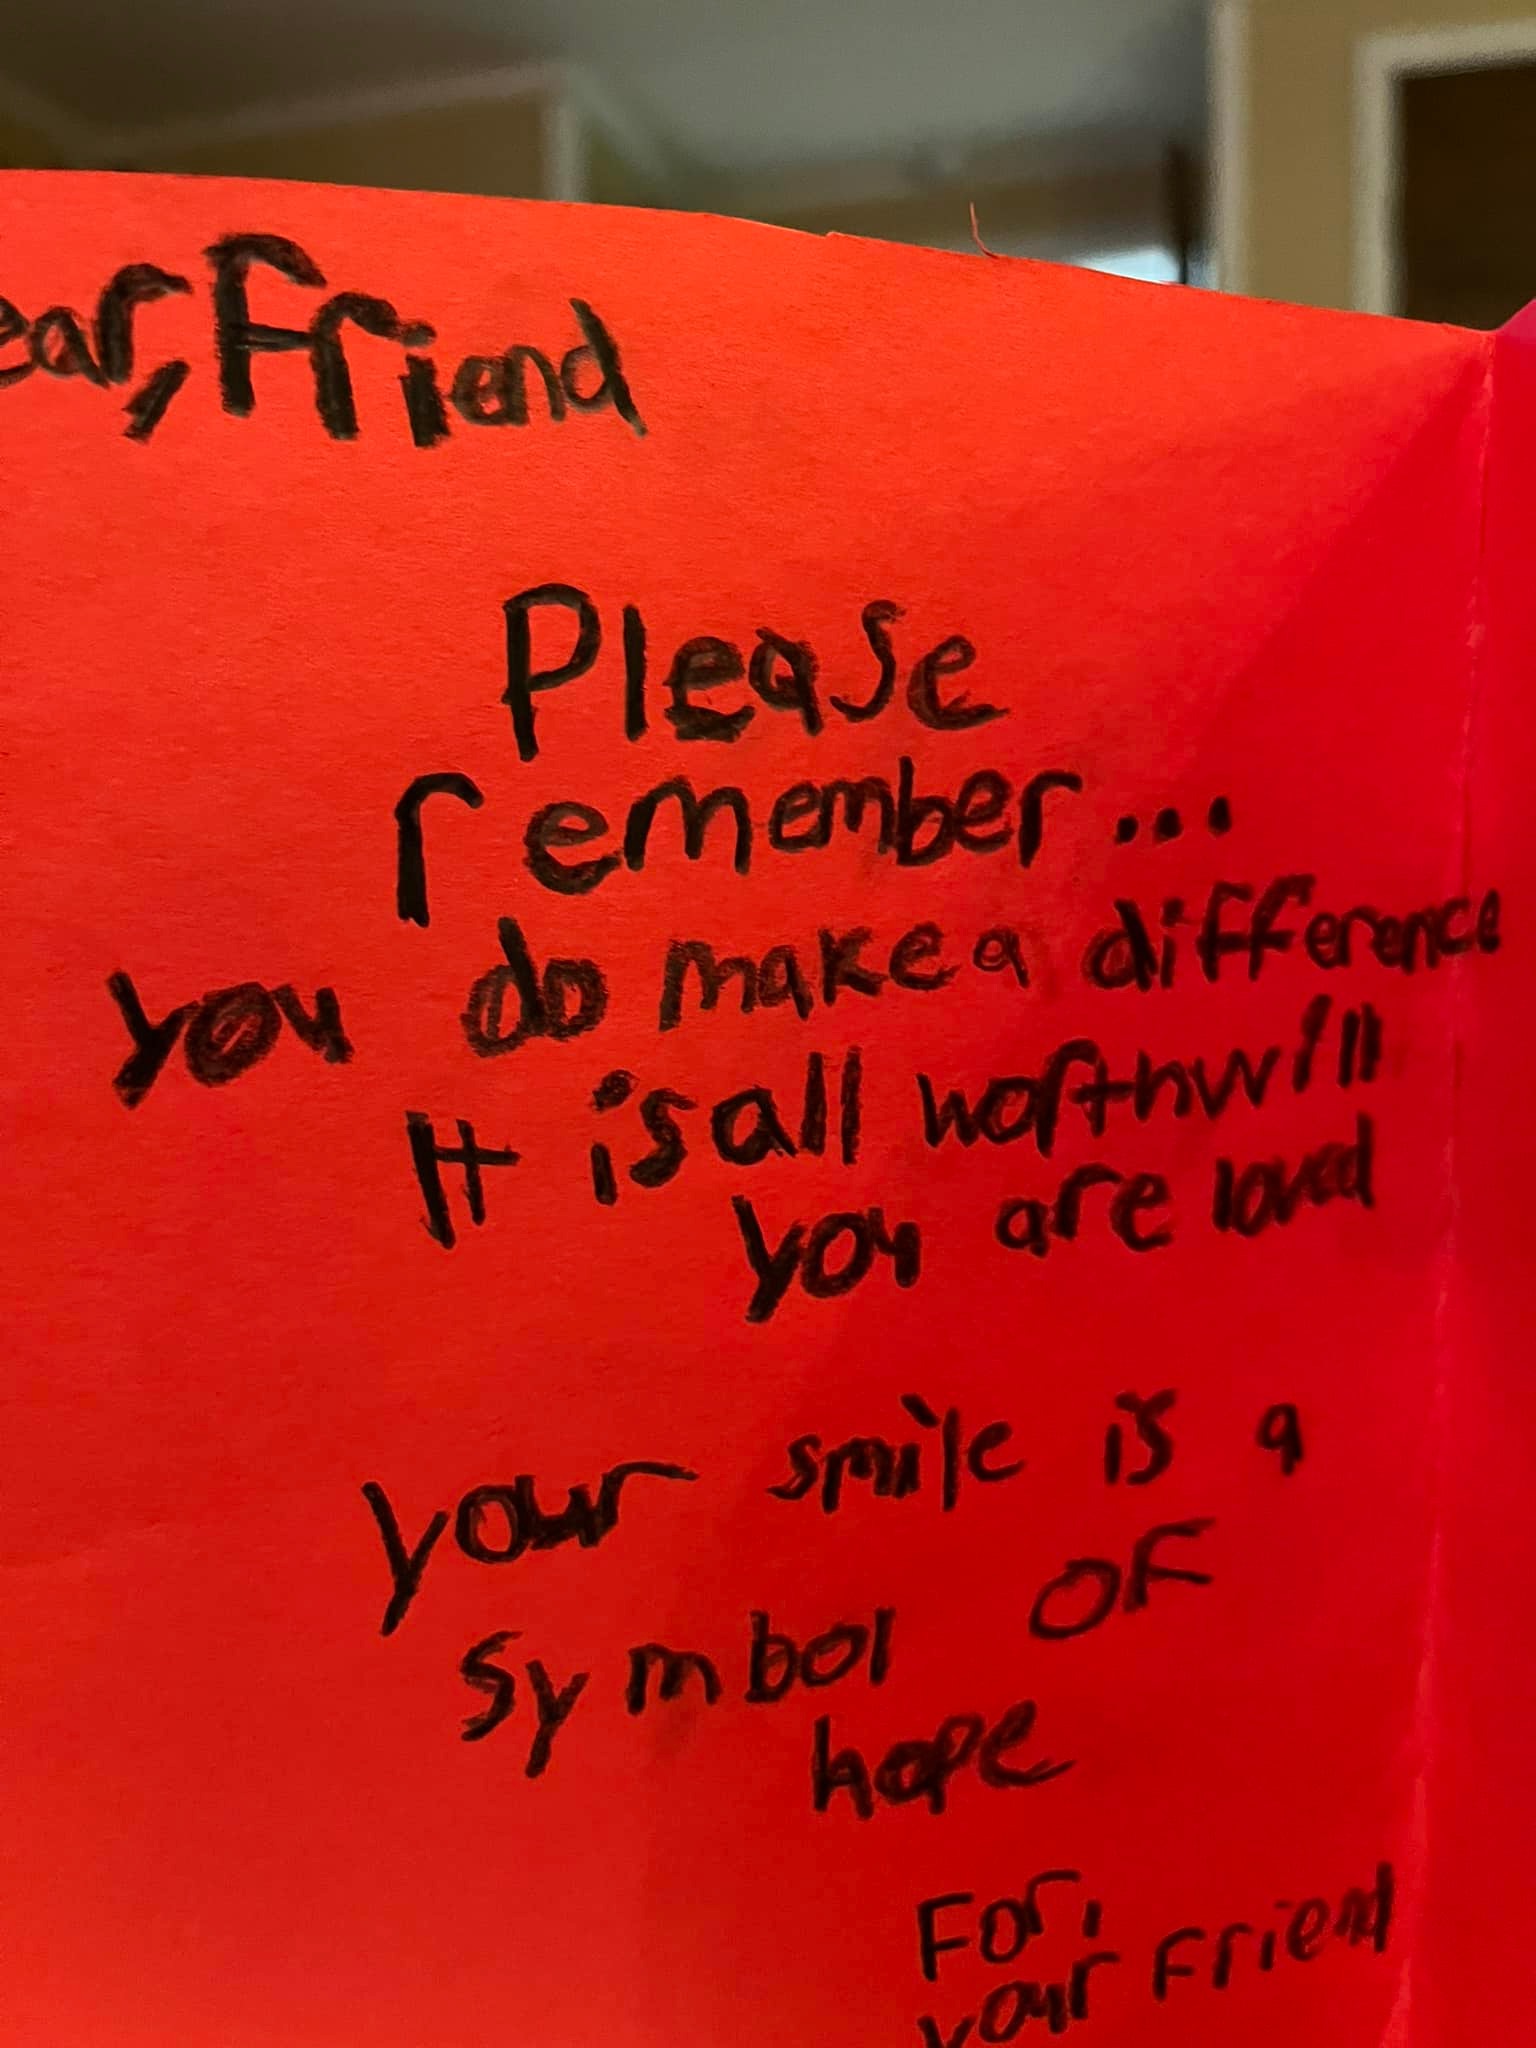 ear, Friend
Please
remember...
you do make a difference
It is all worthwill
you are loved
your smile is a
symbol of
hope
For,
your Friend